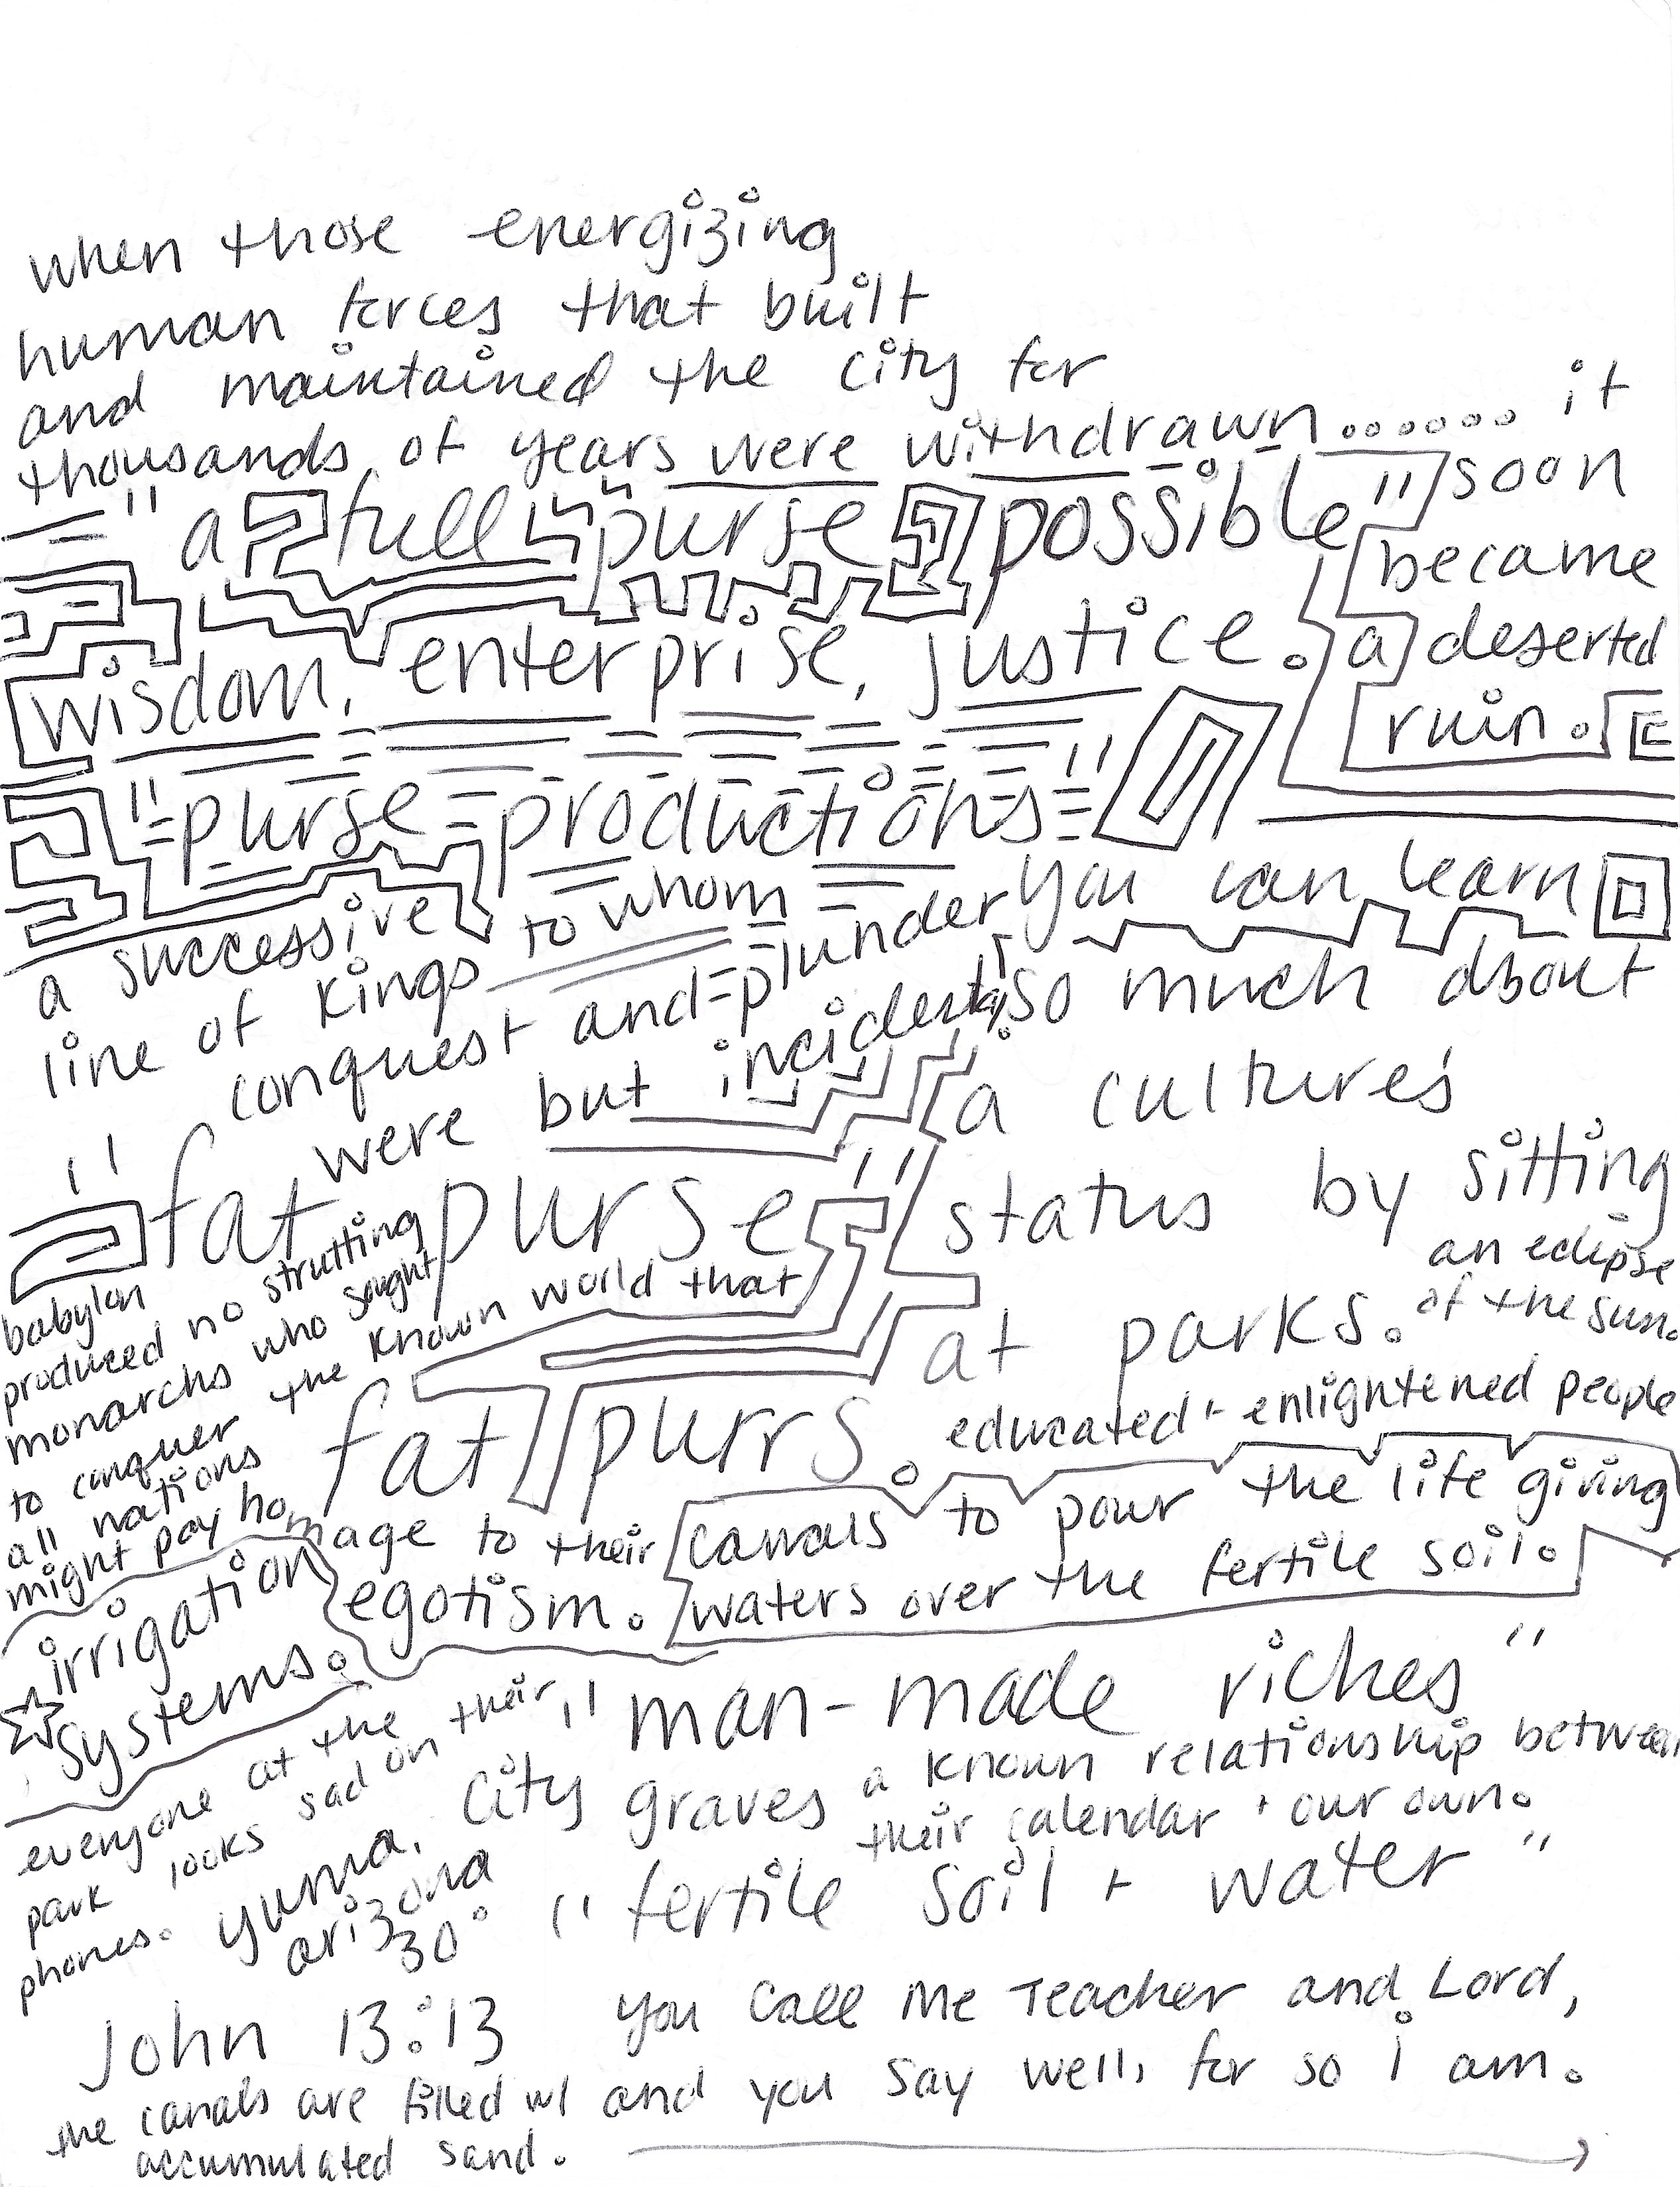 when those energizing
human forces that built
and maintained the city for
thousands of years were withdrawn...... it
soon
became
a deserted
ruin.
"a full purse possible"
wisdom, enterprise, justice.
"purse productions"
you can learn
so much about
a cultures
status by sitting
at parks.
a successive
line of kings to whom
conquest and plunder
were but incidental.
"fat purse"
fat purrs.
an eclipse
of the sun.
babylon
produced no strutting
monarchs who sought
to conquer the known world that
all nations
might pay homage to their
egotism.
educated + enlightened people
canals to pour the life giving
waters over the fertile soil.
irrigation
systems.
"man-made riches"
everyone at the
park looks sad on their
phones.
city graves
a known relationship between
their calendar + our own.
yuma,
arizona
30°
"fertile soil + water"
John 13:13 you call Me Teacher and Lord,
and you say well, for so i am.
the canals are filled w/
accumulated sand.